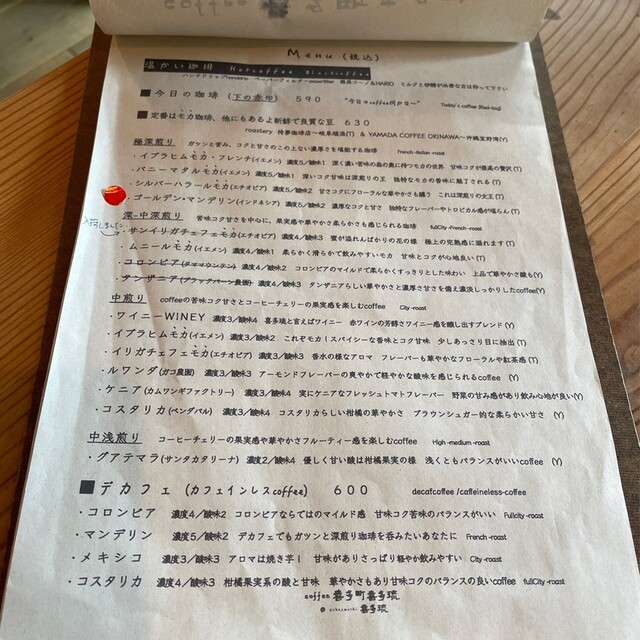 Menu (税込)
温かい珈琲 Hotcoffee Blackcoffee
ハンドドリップhandDrip ペーパーフィルターpaperfilter 器具コーノ&HARIO ミルクと砂糖が必要な方は仰って下さい
■今日の珈琲 (下の赤印) 590 "今日のcoffee何かな〜" Today's coffee (Red-tag)
■定番はモカ珈琲、他にもあるよ新鮮で良質な豆 630
roastery 待夢珈琲店〜岐阜瑞浪(T) & YAMADA COFFEE OKINAWA〜沖縄宜野湾(Y)
極深煎り ガツンと苦み、コクと甘さのこの上ない濃厚さを堪能する珈琲 french-italian-roast
・イブラヒムモカ・フレンチ(イエメン) 濃度5/酸味1 深く濃い苦味の晶の奥に持つモカの世界 甘味コクが最高の贅沢(T)
・バニーマタルモカ(イエメン) 濃度5/酸味1 深いコク甘味は深煎りの王 独特なモカの香味に魅了される(T)
・シルバーハラールモカ(エチオピア) 濃度5/酸味2 甘さコクにフローラルな華やかさも纏う これは深煎りの女王(T)
・ゴールデン・マンデリン(インドネシア) 濃度5/酸味2 濃厚なコクと甘さ 独特なフレーバーやトロピカル感が堪らん(T)
深-中深煎り 苦味コクと甘さを中心に、果実感や華やかさ柔らかさも感じられる珈琲 fullCity-French-roast
・サンイリガチェフェモカ(エチオピア) 濃度4/酸味3 蜜が溢れんばかりの花の様 極上の完熟感に溢れます(T)
・ムニールモカ(イエメン) 濃度4/酸味1 柔らかく滑らかで飲みやすいモカ 甘味とコクが心地良い(T)
・コロンビア(テママウンテン) 濃度4/酸味2 コロンビアのマイルドで柔らかくすっきりとした味わい 上品で華やか酸も(Y)
・タンザニア(ブラックバーン農園) 濃度4/酸味3 タンザニアらしい華やかさと濃厚さ甘さを備え濃淡しっかりしたcoffee(Y)
中煎り coffeeの苦味コク甘さとコーヒーチェリーの果実感を楽しむcoffee City-roast
・ワイニーWINEY 濃度3/酸味4 喜多琉と言えばワイニー 赤ワインの芳醇さワイニー感を醸し出すブレンド(Y)
・イブラヒムモカ(イエメン) 濃度3/酸味2 これぞモカ!スパイシーな香味とコク甘味 少しあっさり目に抽出(T)
・イリガチェフェモカ(エチオピア) 濃度3/酸味3 香水の様なアロマ フレーバーも華やかなフローラルや紅茶感(T)
・ルワンダ(ガコ農園) 濃度3/酸味3 アーモンドフレーバーの爽やかで軽やかな酸味を感じられるcoffee (Y)
・ケニア(カムワンギファクトリー) 濃度3/酸味4 実にケニアなフレッシュトマトフレーバー 野菜の甘み感があり飲み心地が良い(Y)
・コスタリカ(ベンダバル) 濃度3/酸味4 コスタリカらしい柑橘の華やかさ ブラウンシュガー的な柔らかい甘さ (Y)
中浅煎り コーヒーチェリーの果実感や華やかさフルーティー感を楽しむcoffee High-medium-roast
・グアテマラ(サンタカタリーナ) 濃度2/酸味4 優しく甘い酸は柑橘果実の様 浅くともバランスがいいcoffee (Y)
■デカフェ(カフェインレスcoffee) 600 decafcoffee/caffeineless-coffee
・コロンビア 濃度4/酸味2 コロンビアならではのマイルド感 甘味コク苦味のバランスがいい Fullcity-roast
・マンデリン 濃度5/酸味2 デカフェでもガツンと深煎り珈琲を呑みたいあなたに French-roast
・メキシコ 濃度3/酸味3 アロマは焼き芋! 甘みがありさっぱり軽め飲みやすい City-roast
・コスタリカ 濃度4/酸味3 柑橘果実系の酸と甘味 華やかさもあり甘味コクのバランスの良いcoffee fullCity-roast
coffee 喜多町喜多琉
喜多琉